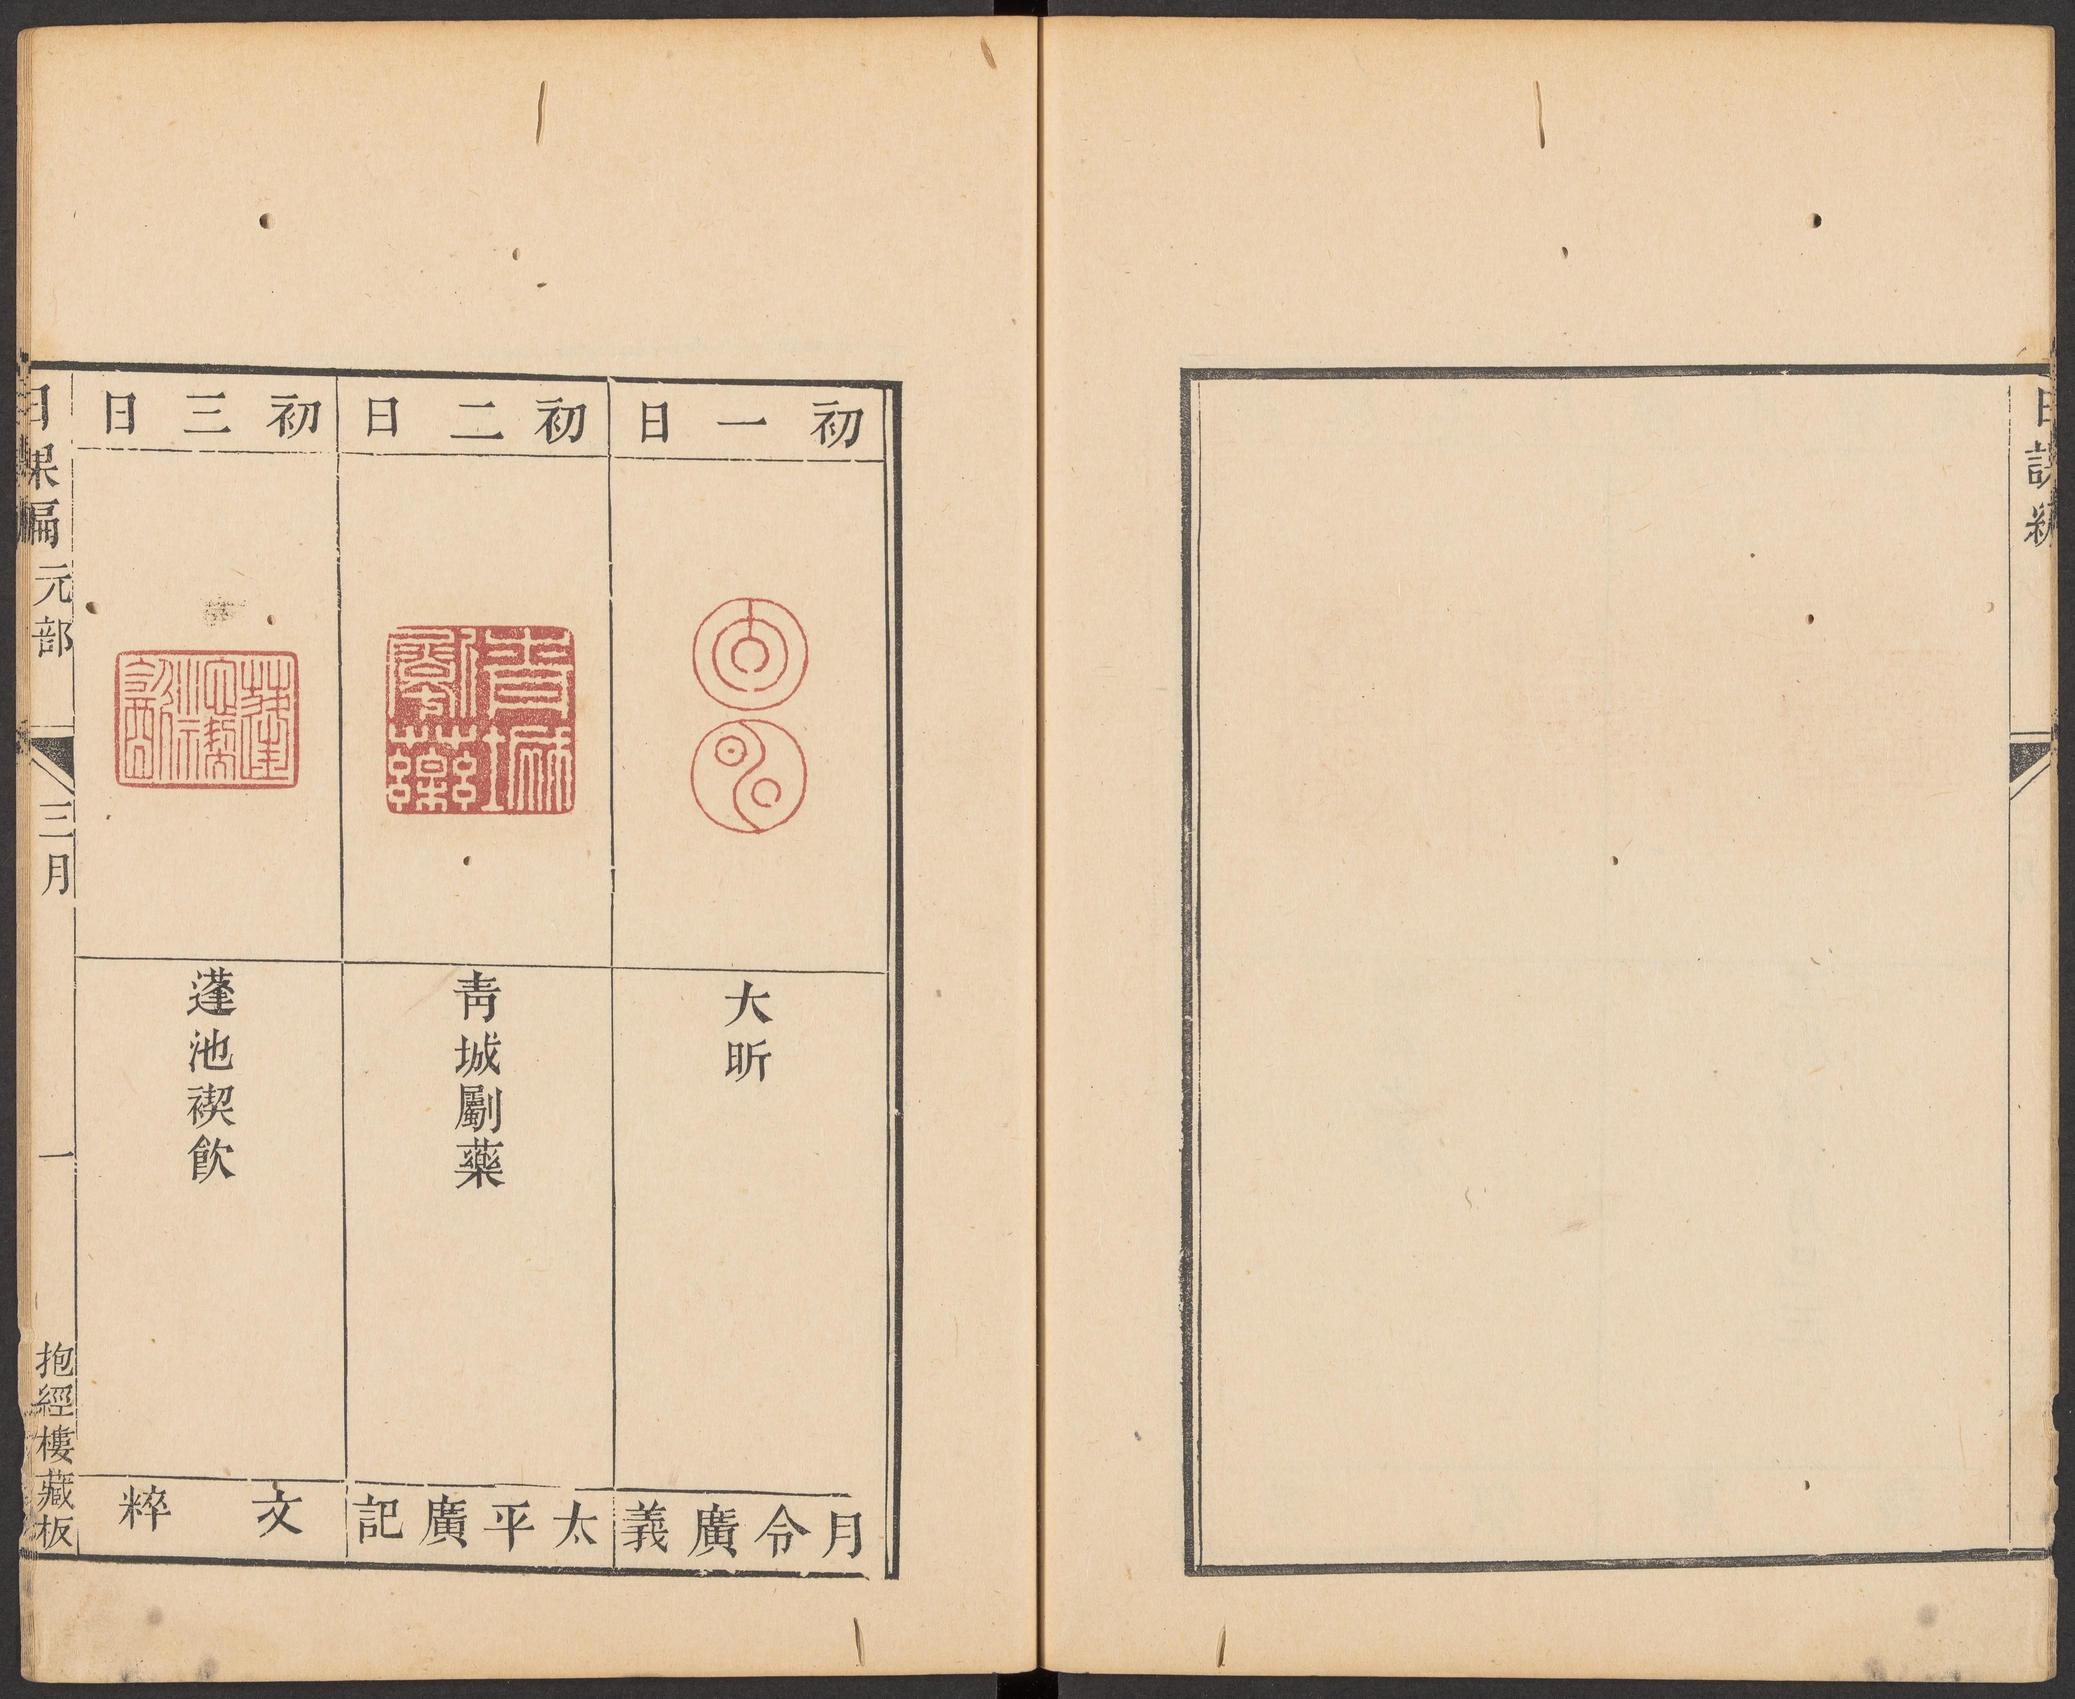 初一日
大昕
月令廣義
初二日
青城劚藥
青城劚藥
太平廣記
初三日
蓬池禊飲
蓬池禊飲
文粹
日課編 元部
三月
一
抱經樓藏板
日課編